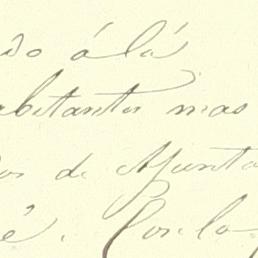 do á lá
abitantes mas
os de Ayunta
é. Con lo